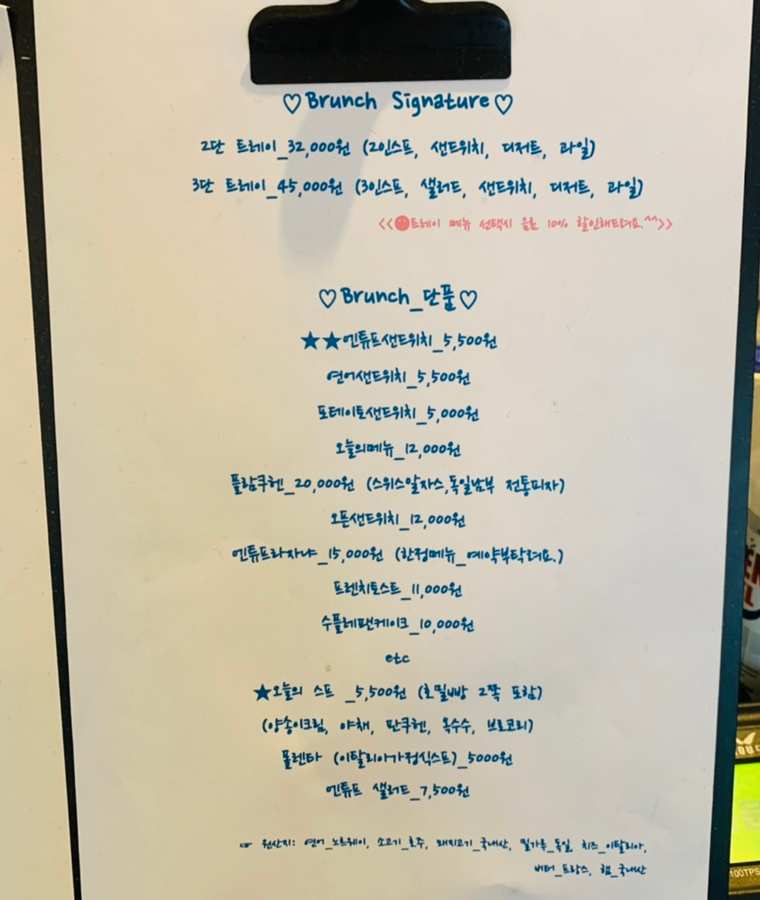 ♡Brunch Signature♡
2단 트레이_32,000원 (2인스프, 샌드위치, 디저트, 과일)
3단 트레이_45,000원 (3인스프, 샐러드, 샌드위치, 디저트, 과일)
<<트레이 메뉴 선택시 음료 10% 할인해드려요.^^>>
♡Brunch_단품♡
★★엔튜프샌드위치_5,500원
연어샌드위치_5,500원
포테이토샌드위치_5,000원
오늘의메뉴_12,000원
플람쿠헨_20,000원 (스위스알자스,독일남부 전통피자)
오픈샌드위치_12,000원
엔튜프라자냐_15,000원 (한정메뉴_예약부탁려요.)
프렌치토스트_11,000원
수플레팬케이크_10,000원
etc
★오늘의 스프 _5,500원 (호밀빵 2쪽 포함)
(양송이크림, 야채, 판쿠헨, 옥수수, 브로코리)
폴렌타 (이탈리아가정식스프)_5000원
엔튜프 샐러드_7,500원
☞ 원산지: 연어_노르웨이, 소고기_호주, 돼지고기_국내산, 밀가루_독일, 치즈_이탈리아,
버터_프랑스, 햄_국내산
100TPS